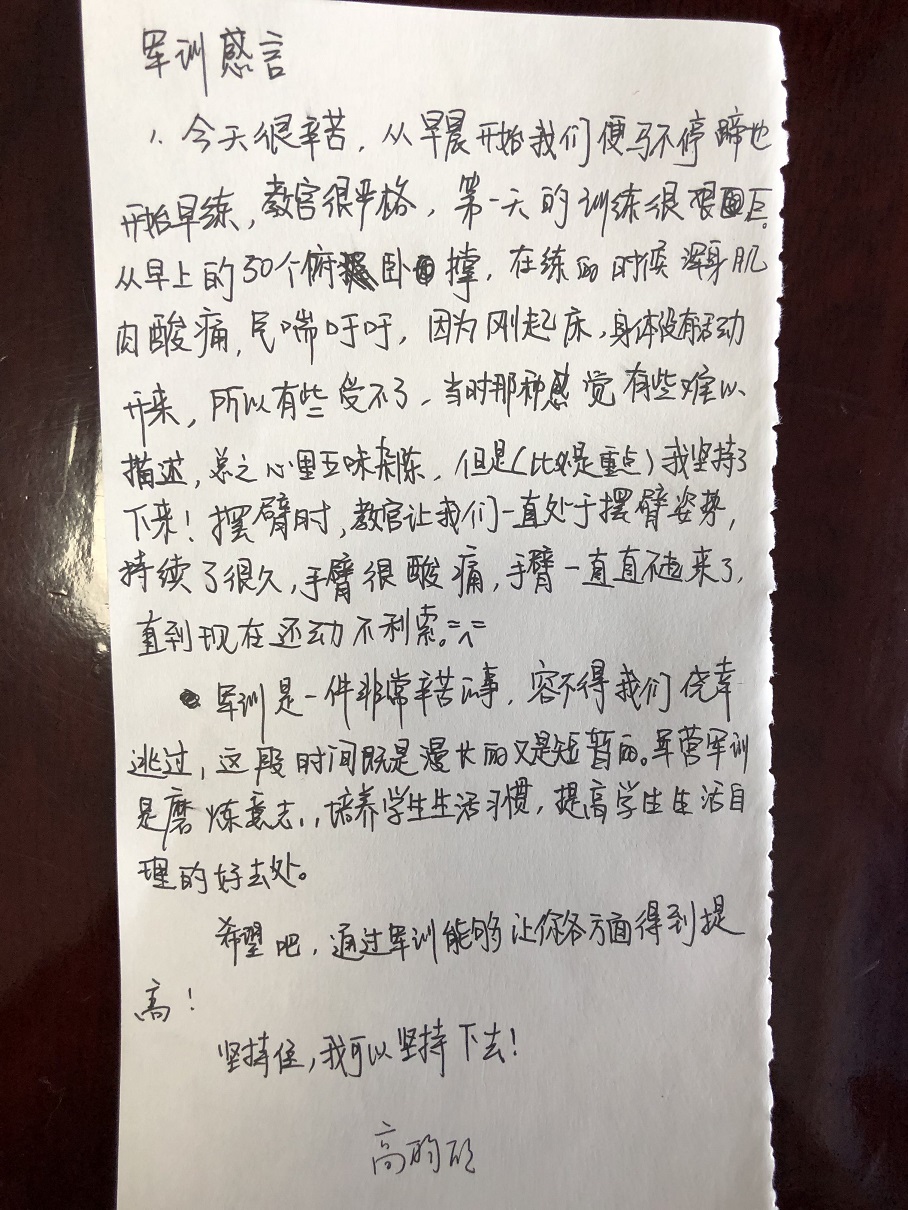 军训感言
今天很辛苦，从早晨开始我们便马不停蹄地
开始早练，教官很严格，第一天的训练很艰巨。
从早上的50个俯卧撑，在练的时候浑身肌
肉酸痛，气喘吁吁，因为刚起床，身体没有活动
开来，所以有些受不了，当时那种感觉有些难以
描述，总之心里五味杂陈，但是（此处是重点）我坚持了
下来！摆臂时，教官让我们一直处于摆臂姿势，
持续了很久，手臂很酸痛，手臂一直直不起来了，
直到现在还动不利索。
军训是一件非常辛苦的事，容不得我们侥幸
逃过，这段时间既是漫长的又是短暂的。军营军训
是磨炼意志，培养学生生活习惯，提高学生生活自
理的好去处。
希望吧，通过军训能够让你各方面得到提
高！
坚持住，我可以坚持下去！
高